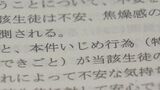 うことについて、不安
該生徒は不安、焦燥感の
測される。
と、本件いじめ行為（特
できごと）が当該生徒の
れによって不安な気持